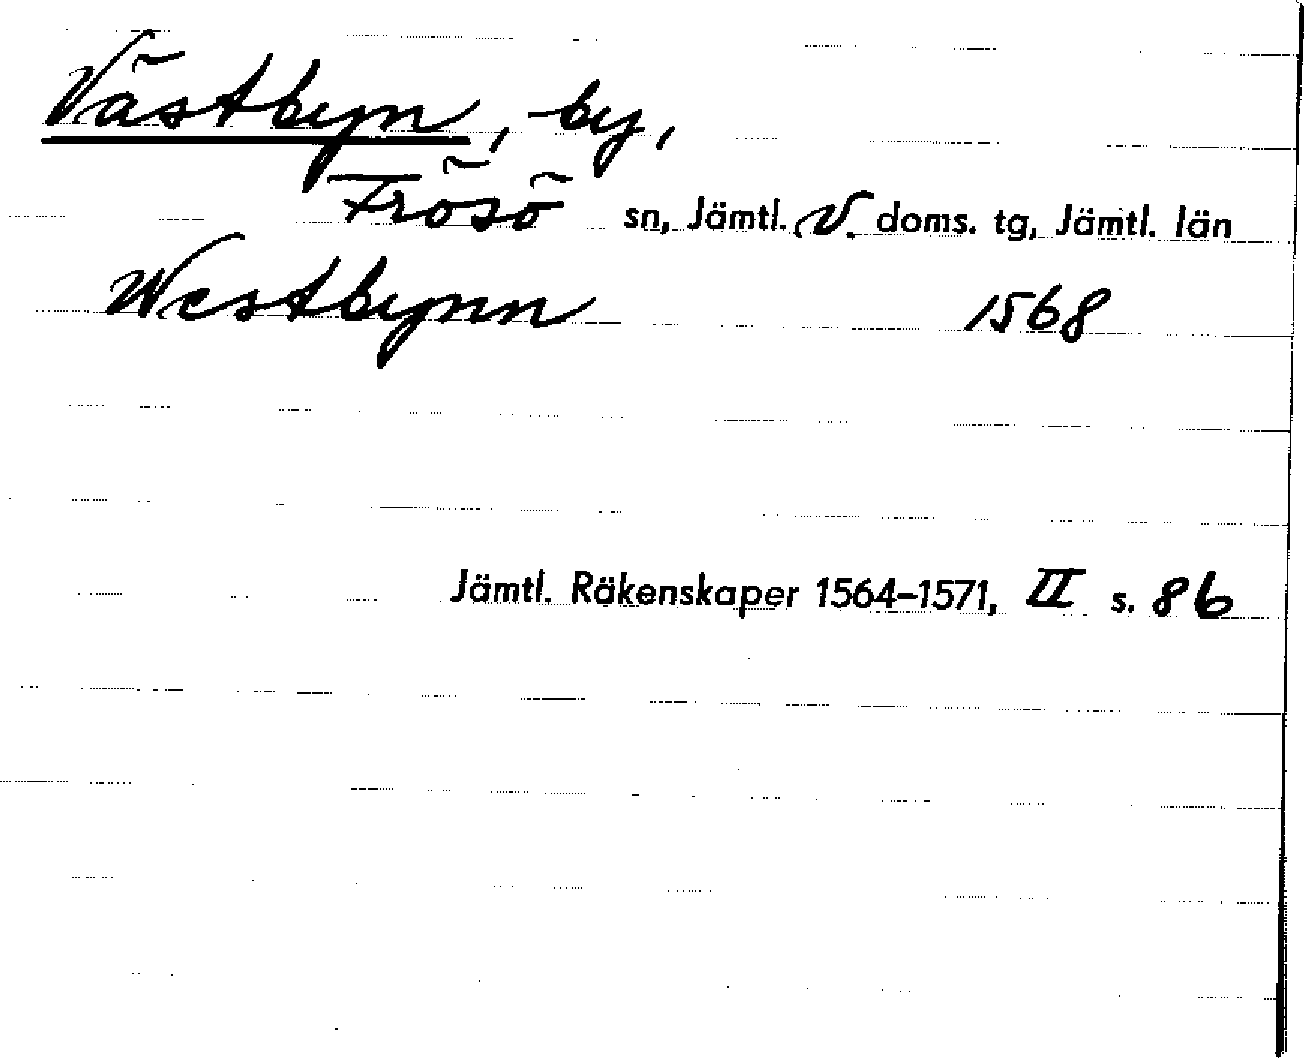 Västbyn, by,
Frösö sn, Jämtl. V. doms. tg, Jämtl. län
Westbynn 1568
Jämtl. Räkenskaper 1564–1571, II s. 86